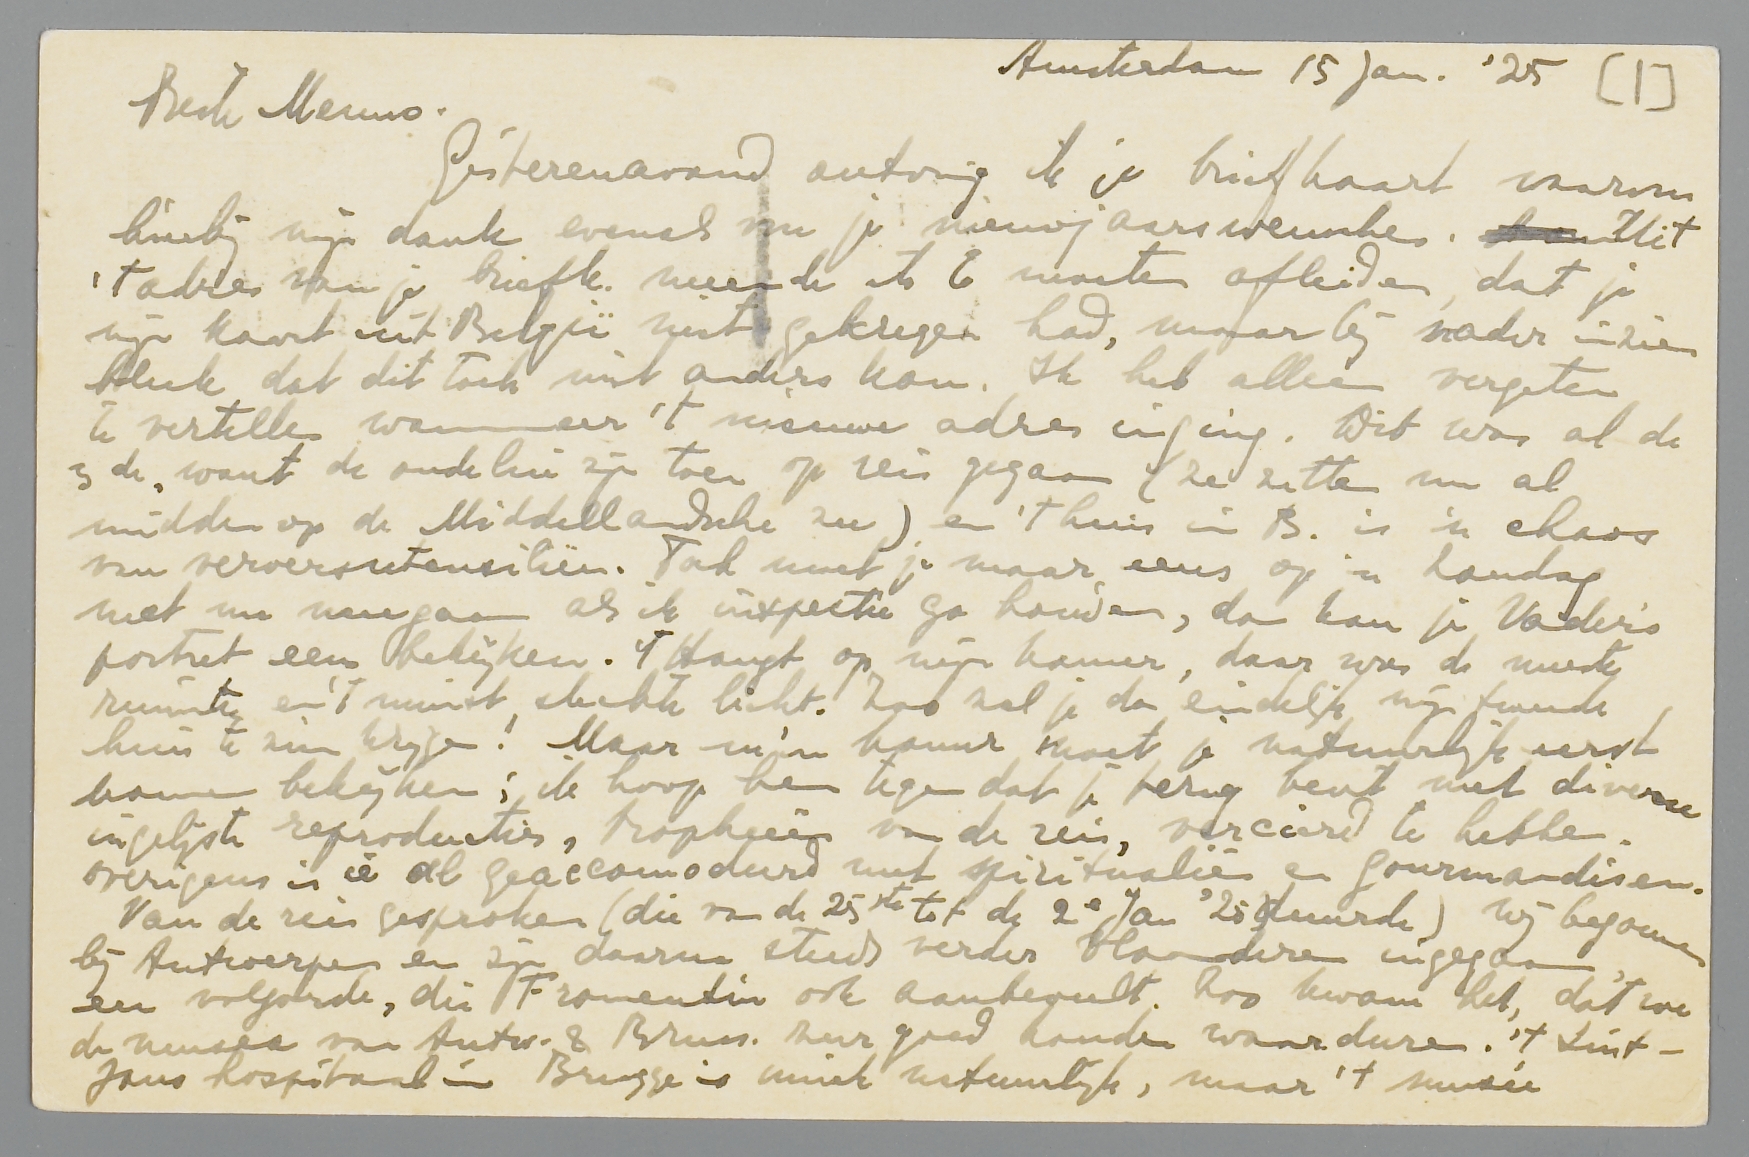 Amsterdam 15 Jan. '25 [1]
Beste Menno.
Gisterenavond ontving ik je briefkaart waarvoor
hierbij mijn dank evenals voor je nieuwjaarswenschen. Uit
't adres van je briefk. meende ik te moeten afleiden, dat je
mijn kaart uit België niet gekregen had, maar bij nader inzien
bleek dat dit toch niet anders kon. Ik heb alleen vergeten
te vertellen wanneer 't nieuwe adres inging. Dit was al de
3de, want de oudelui zijn toen op reis gegaan (ze zitten nu al
midden op de Middellandsche zee) en 't huis in B. is 'n chaos
van ververs utensiliën. Toch moet je maar eens op 'n
met me meegaan als ik inspectie ga houden, dan kan je Vader's
portret eens bekijken. 't Hangt op mijn kamer, daar was de meeste
ruimte en 't minst slechte licht. Zoo zal je dan eindelijk mijn
huis te zien krijgen! Maar m'n kamer moet je natuurlijk eerst
komen bekijken; ik hoop hem tegen dat je terug bent met diverse
ingelijste reproducties, tropheeën van de reis, vercierd te hebben.
Overigens is ie al geaccomodeerd met spiritualiën en gourmandisen.
Van de reis gesproken (die van de 25ste tot de 2e Jan '25 duurde) wij begonnen
bij Antwerpen en zijn daarna steeds verder Vlaanderen ingegaan,
een volgorde, die Fromentin ook aanbeveelt. Zoo kwam het, dat we
de musea van Antw. & Bruss. zeer goed konden waardeeren. 't Sint-
Jans hospitaal in Brugge is uniek natuurlijk, maar 't musée